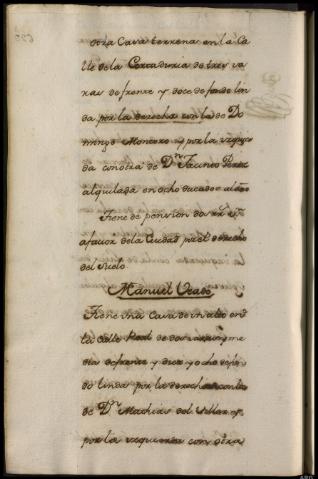 otra Casa terrena en la Ca
lle de la Cortaduria de tres va
ras de frente y doce de fondo lin
da por la derecha con la de Do
mingo Montero y por la izquier
da con otra de Dn Jacinto Perez
alquilada en ocho ducados al año
Tiene de pension dos rrs
a favor de la Ciudad por el derecho
del suelo
Manuel Ocabo
Tiene una Casa de un alto en
la calle Real de dos varas y me
dia de frente y diez y ocho de fon
do linda por la derecha con la
de Dn Mathias del Villar y
por la izquierda con otra